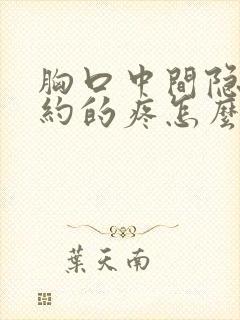 胸口中間隐
約的疼怎麼
葉天南